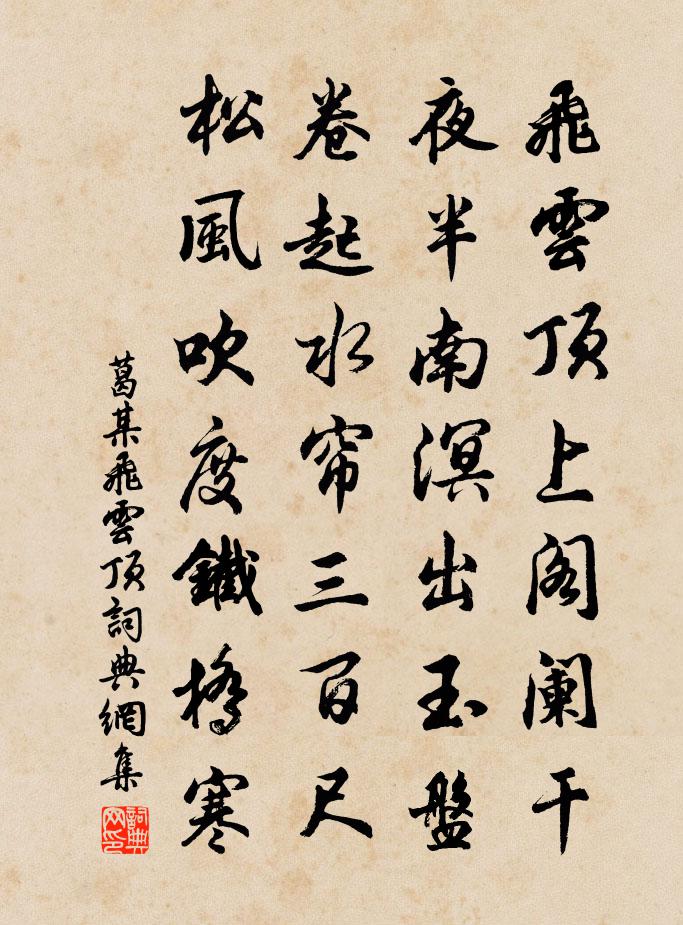 飛雲頂上閣闌干
夜半南溟出玉盤
卷起水帘三百尺
松風吹度鐵橋寒
葛某飛雲頂詞典網集
詞典網印